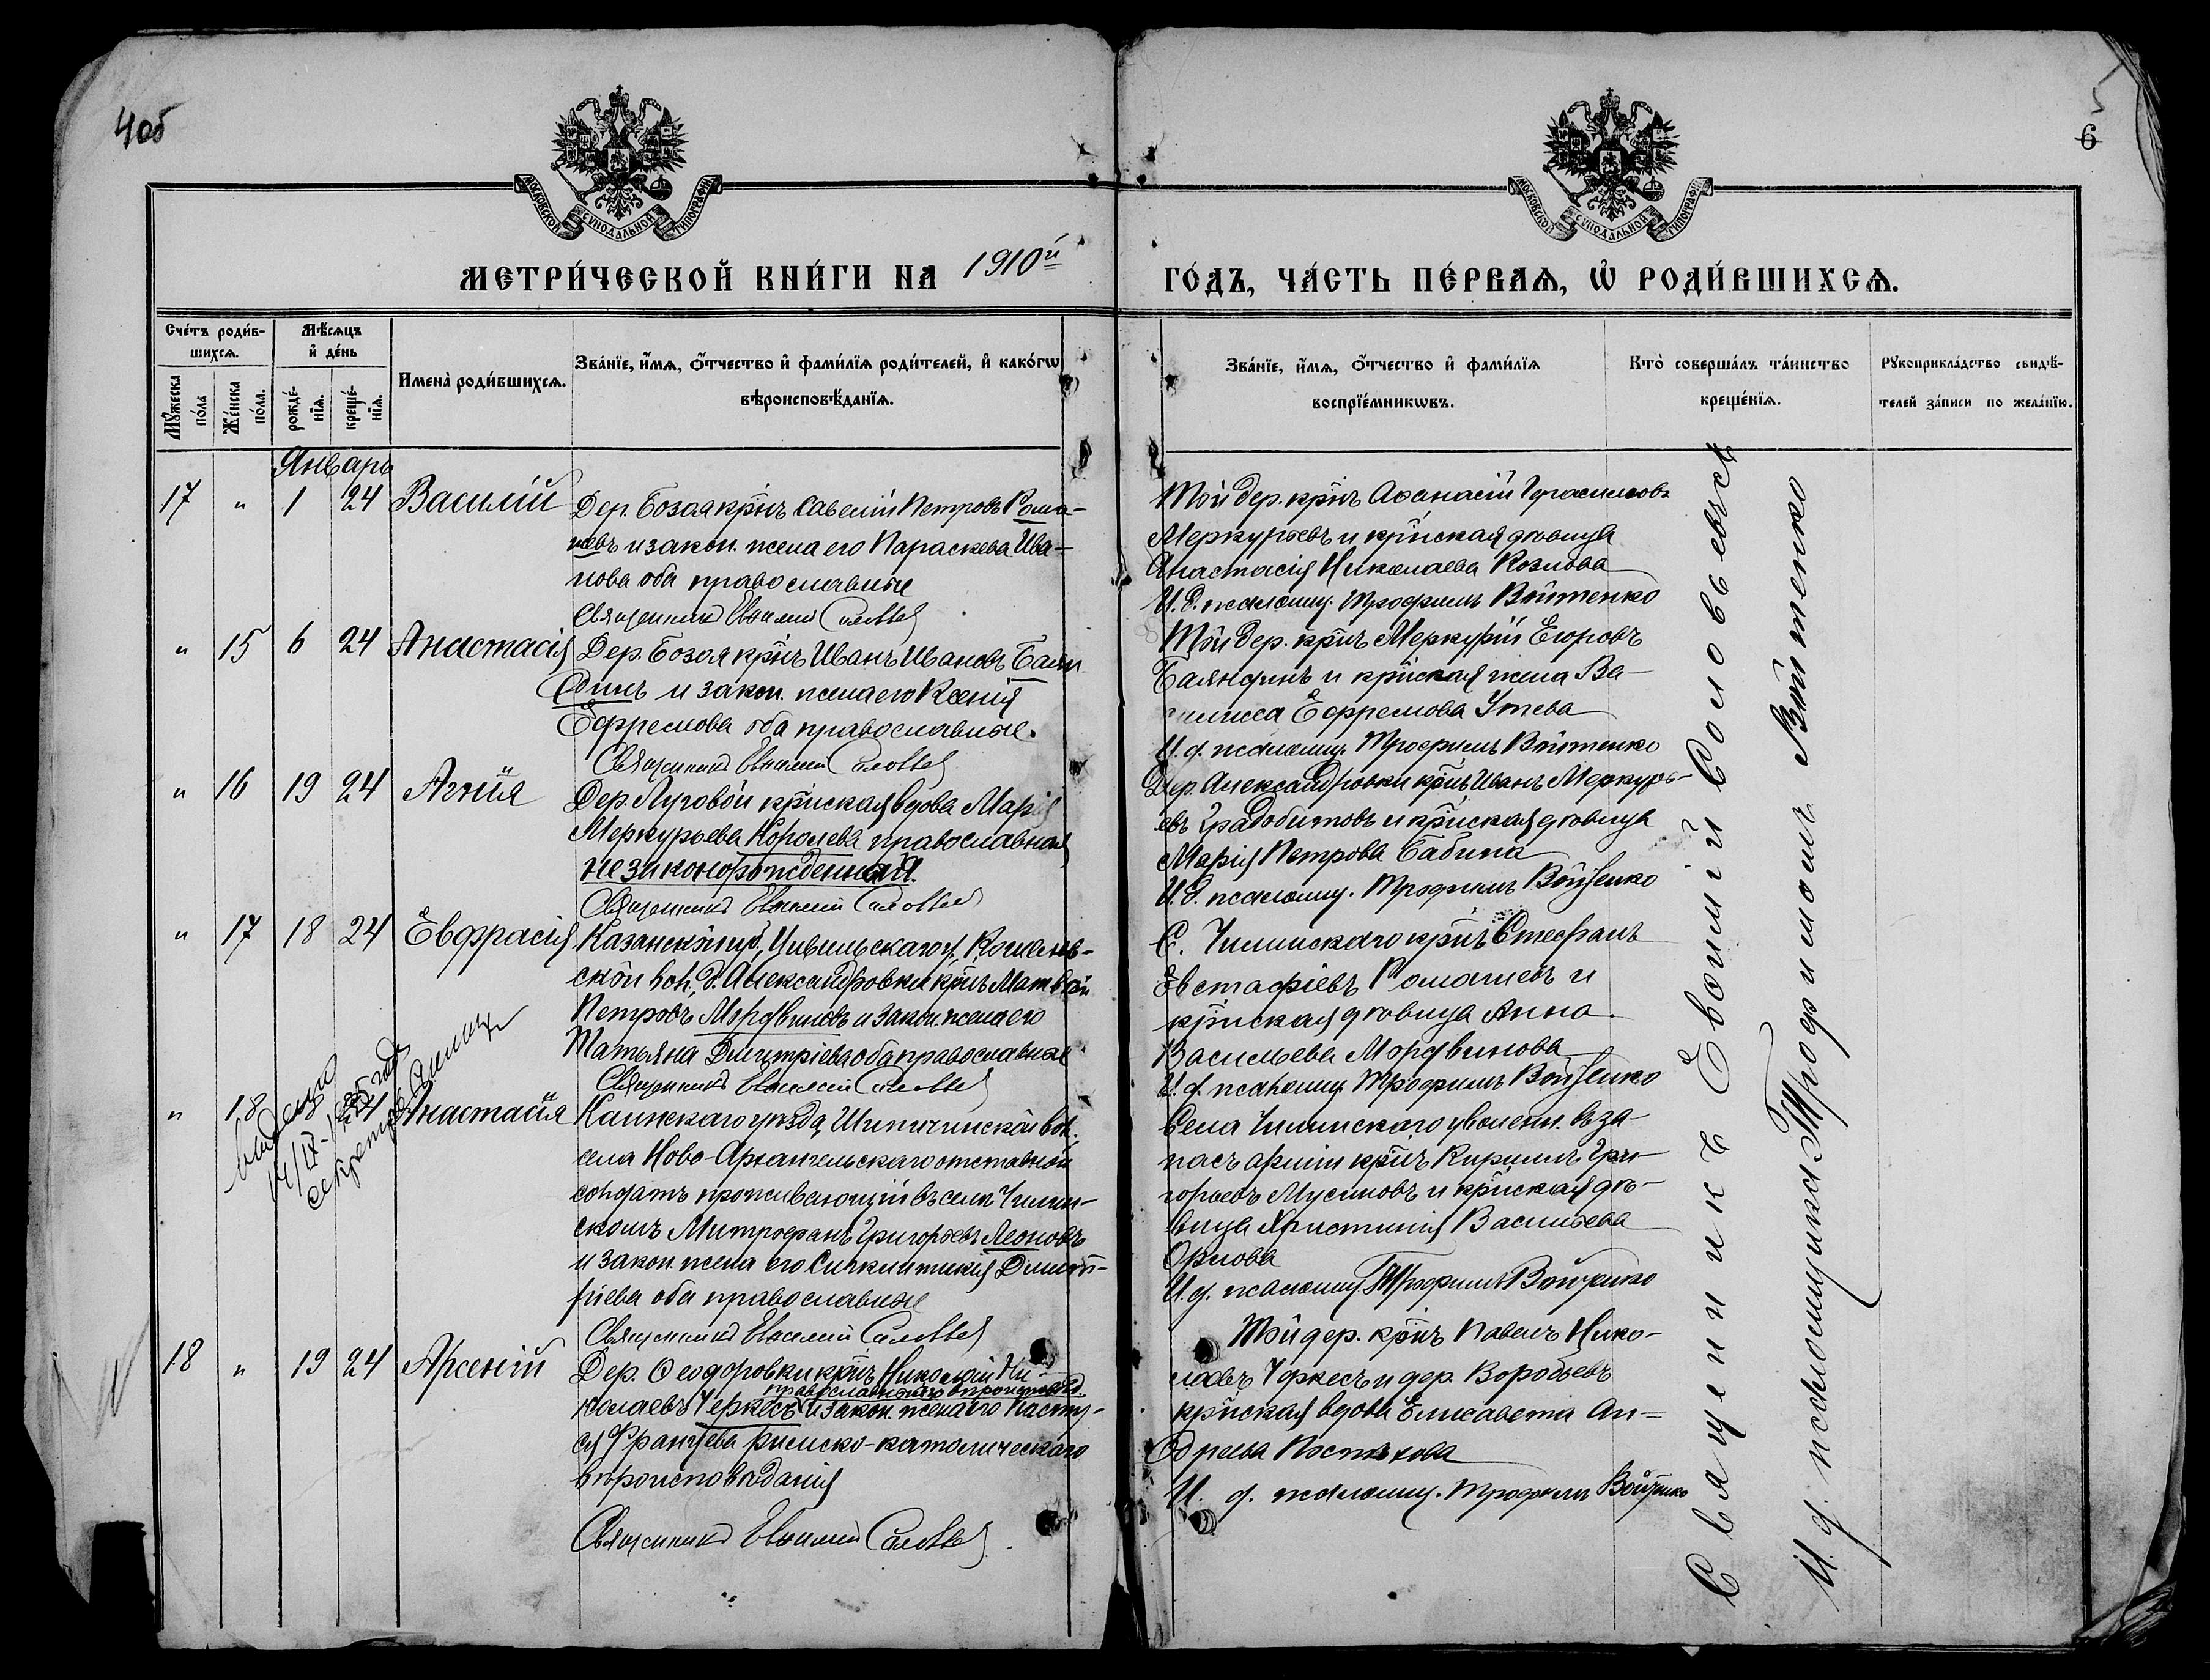 4об
5
6
МОСКОВСКОЙ СѴНОДАЛЬНОЙ ТИПОГРАФІИ
МОСКОВСКОЙ СѴНОДАЛЬНОЙ ТИПОГРАФІИ
МЕТРИ́ЧЕСКОЙ КНИ́ГИ НА 1910й
ГО́ДЪ, ЧА́СТЬ ПЕ́РВАѦ, Ѡ҆ РОДИ́ВШИХСѦ.
Сче́тъ роди́в-
шихсѧ.
Мꙋ́жеска по́ла
Же́нска по́ла.
Мѣ́сѧцъ
и҆ де́нь
рожде́-
нїѧ.
креще́-
нїѧ.
Имена̀ роди́вшихсѧ.
Зва́нїе, и҆́мѧ, ѻ҆́тчество и҆ фами́лїѧ роди́телей, и҆ како́гѡ
вѣроисповѣ́данїѧ.
Зва́нїе, и҆́мѧ, ѻ҆́тчество и҆ фами́лїѧ
воспрїе́мникѡвъ.
Кто̀ соверша́лъ та́инство
креще́нїѧ.
Рꙋкоприкла́дство свидѣ́-
телей за́писи по жела́нїю.
Январь
17 " 1 24 Василій
Дер. Бозоя крнъ Савелій Петровъ Рома-
шевъ и закон. жена его Параскева Ива-
нова оба православные
Священникъ Евѳимій Соловьев
Той дер. крнъ Аѳанасій Герасимовъ
Меркурьевъ и крнская дѣвица
Анастасія Николаева Козлова
И. д. псаломщ. Трофимъ Войтенко
" 15 6 24 Анастасія
Дер. Бозоя крнъ Иванъ Ивановъ Баян
динъ и закон. жена его Ксенія
Ефремова оба православные.
Священникъ Евѳимій Соловьев
Той дер. крнъ Меркурій Егоровъ
Баяндинъ и крнская жена Ва-
силисса Ефремова Утева
И. д. псаломщ. Трофимъ Войтенко
" 16 19 24 Агнія
Дер. Луговой крнская вдова Марія
Меркурьева Королева православная
незаконорожденная.
Священникъ Евѳимій Соловьев
Дер. Александровки крнъ Иванъ Меркурь-
евъ Градобитовъ и крнская дѣвица
Марія Петрова Бабина
И. д. псаломщ. Трофимъ Войтенко
" 17 18 24 Евфрасія
Казанской губ., Цивильскаго у.
ской вол. д. Александровки крнъ Матвѣй
Петровъ Мордвиновъ и закон. жена его
Татьяна Димитріева оба православные
Священникъ Евѳимій Соловьев
С. Тишинскаго крнъ Стефанъ
Евстафіевъ Ромашевъ и
крнская дѣвица Анна
Васильева Мордвинова
И. д. псаломщ. Трофимъ Войтенко
" 18 24 Анастасія
Каинскаго уѣзда, Шипицинской вол.
села Ново-Архангельскаго отставной
солдатъ проживающій въ селѣ
скомъ Митрофанъ Григорьевъ Леоновъ
и закон. жена его Синклитикія Димит-
ріева оба православные
Священникъ Евѳимій Соловьев
увольн. въ за-
пасъ арміи крнъ Кириллъ Гри-
горьевъ Мусиновъ и крнская дѣ-
вица Христинія Васильева
Орлова
И. д. псаломщ. Трофимъ Войтенко
18 " 19 24 Арсеній
Дер. Ѳеодоровки крнъ Николай Ни-
православнаго вѣроисповѣд.
колаевъ Черкесъ и закон. жена его Насту-
ся Францева римско-католическаго
вѣроисповѣданія
Священникъ Евѳимій Соловьев.
Той дер. крнъ Павелъ Нико-
лаевъ Черкесъ и дер. Воробьевъ
крнская вдова Елисавета Ан-
дреева Постькова
И. д. псаломщ. Трофимъ Войтенко
Священникъ Евѳимій Соловьевъ
И. д. псаломщика Трофимъ Войтенко